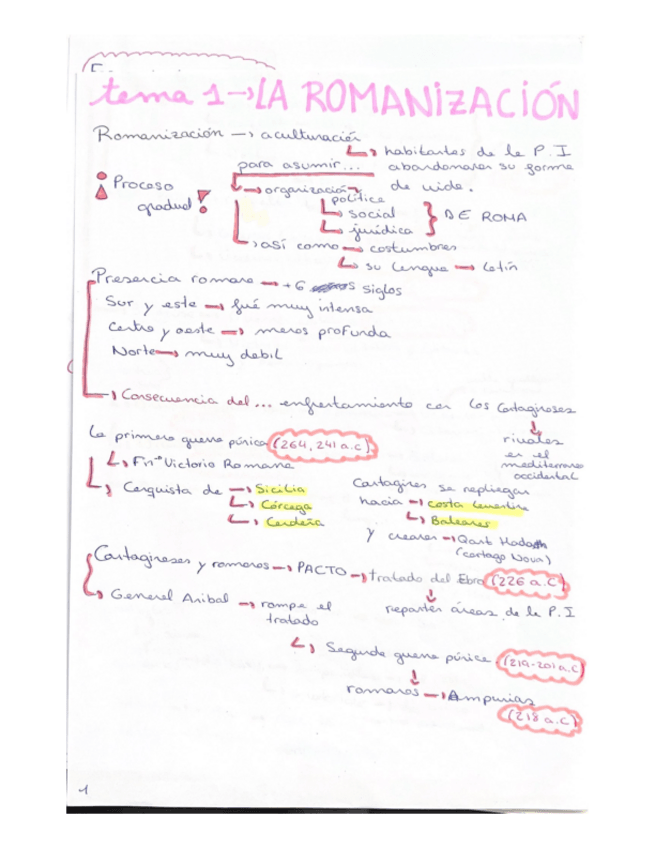 tema 1→LA ROMANIZACIÓN
Romanización → aculturación
↳ habitantes de la P.I
para asumir... abandonaran su forma
de vida.
! Proceso gradual !
→ organización
política
↳ social
↳ jurídica
} DE ROMA
↳ así como → costumbres
↳ su lengua → latín
Presencia romana → +6 siglos
Sur y este → fué muy intensa
Centro y oeste → menos profunda
Norte → muy debil
→ Consecuencia del... enfrentamiento con los Cartagineses
↓
rivales
en el
mediterraneo
occidental
La primera guerra púnica (264, 241 a.c)
↳ Fin = Victoria Romana
↳ Conquista de → Sicilia
↳ Córcega
↳ Cerdeña
Cartagines se repliegan
hacia → costa Levantina
↳ Baleares
y crearon → Qart Hadash
(Cartago Nova)
Cartagineses y romanos → PACTO → tratado del Ebro (226 a.C)
↓
reparten áreas de la P.I
↳ General Anibal → rompe el
tratado
↳ Segunda guerra púnica. (219-201 a.C)
↓
romanos → Ampurias
(218 a.C)
1